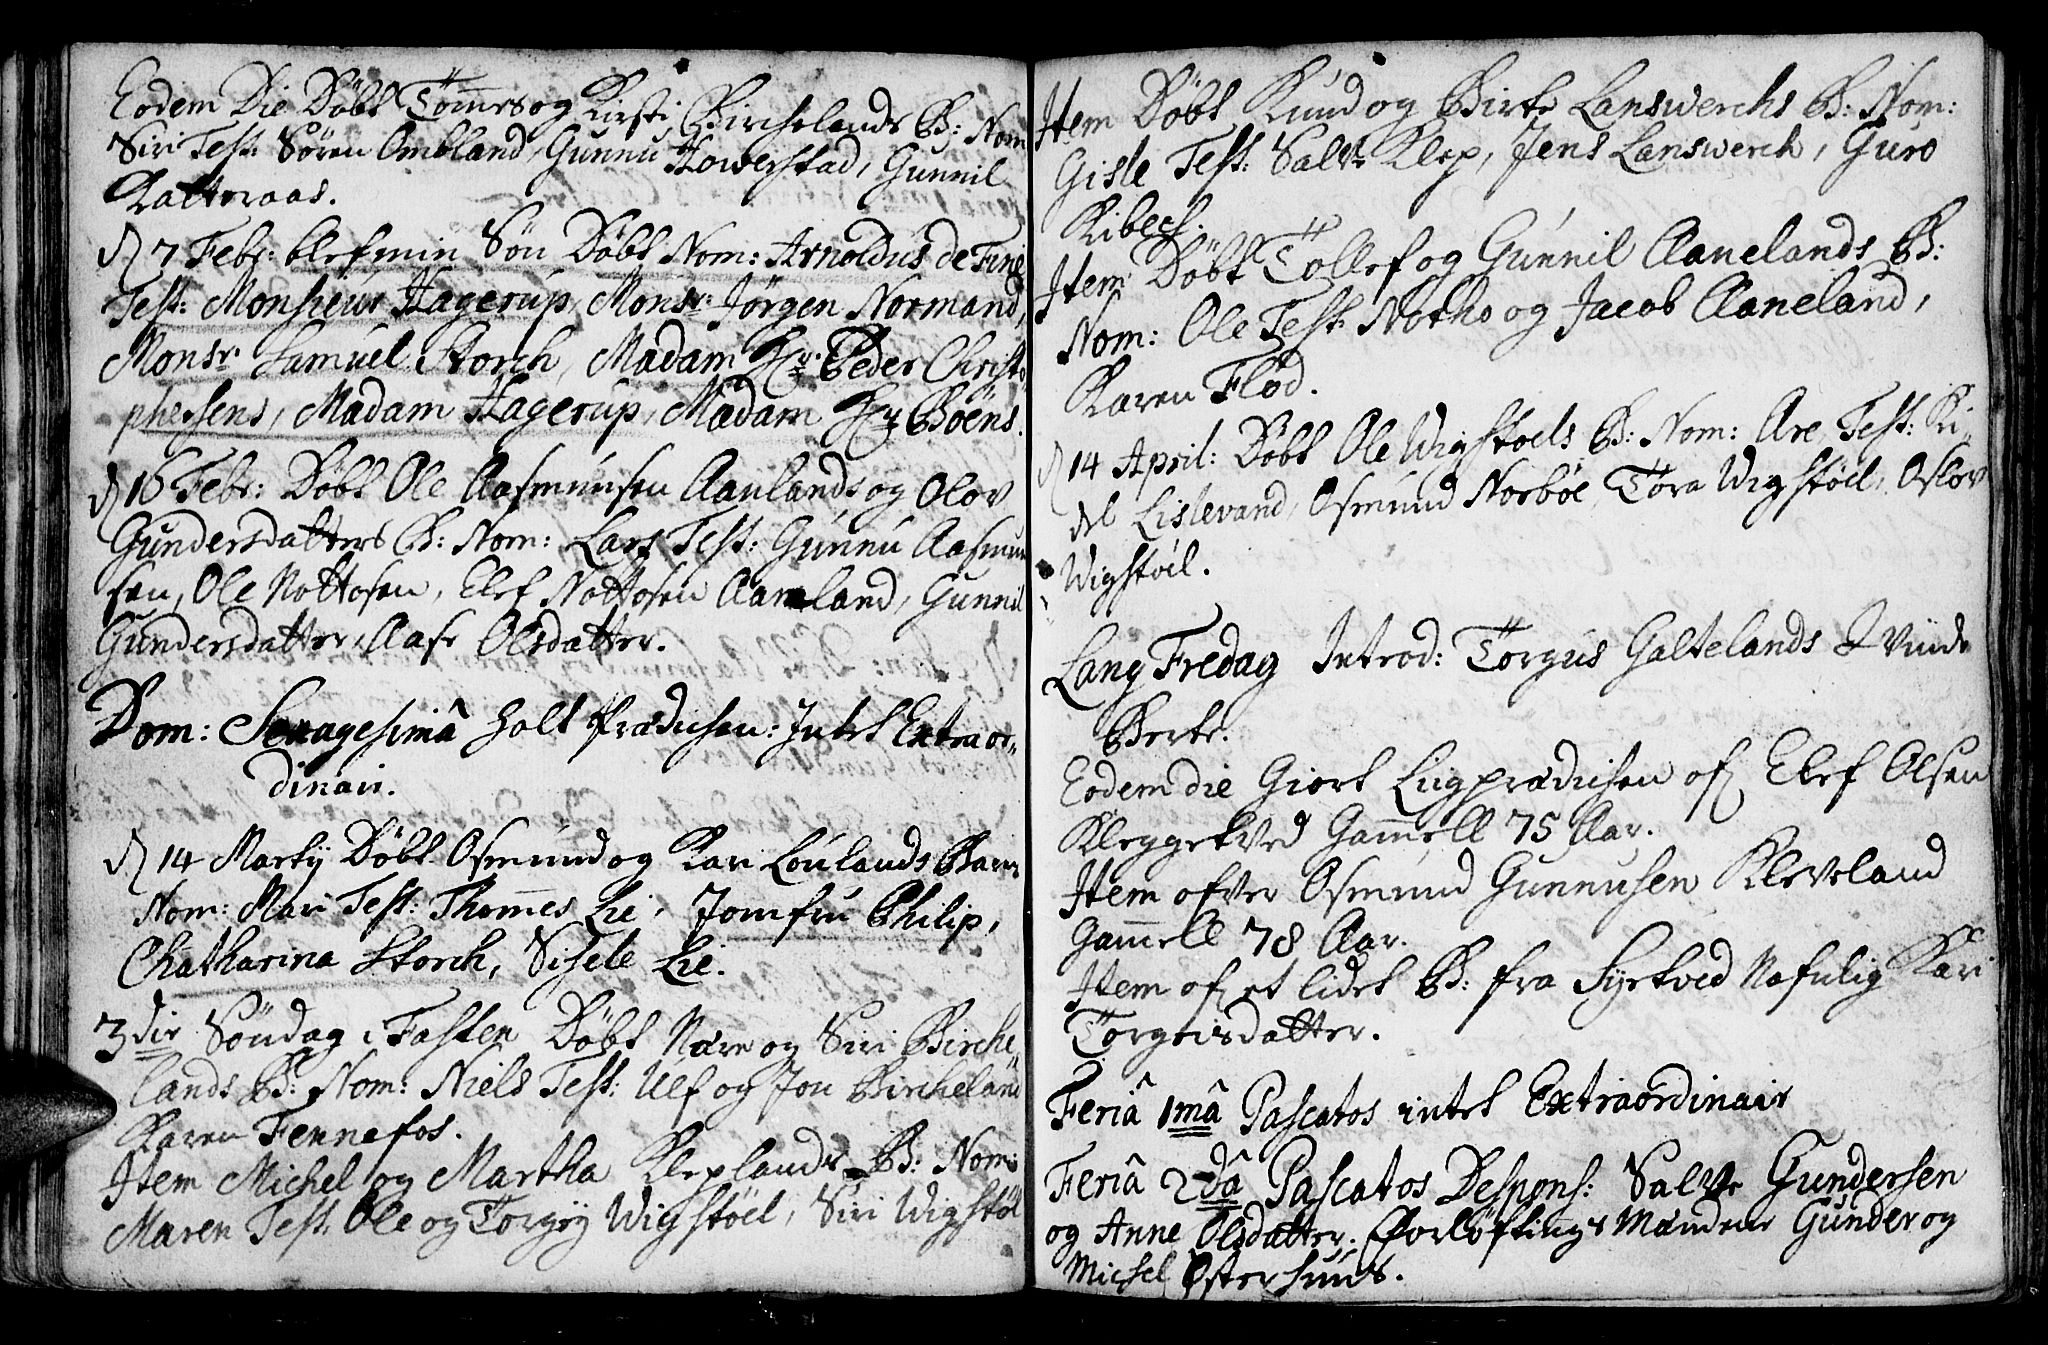 Eodem Die Døbt Tommes og Kirsti Birchelands B: Nom
Siri Test: Søren Ombland, Gunnu Howerstad, Gunnil
Katteraas.
d 7 Febr: blef min Søn Døbt Nom: Arnoldus de Fine
Test: Monsieur Hagerup, Monsr. Jørgen Normand,
Monsr. Samuel Storch, Madam Hr. Peder Christo
phersens, Madam Hagerup, Madam Hr. Boëns.
d 16 Febr: Døbt Ole Aasmunsen Aanlands og Olov
Gundersdatters B: Nom: Lars Test: Gunnu Aasmun
sen, Ole Nottosen, Elef Nottosen Aaneland, Gunnil
Gundersdatter, Aase Olsdatter.
Dom: Sexagesimâ holt Prædichen: Intet Extraor-
dinair.
d 14 Martij Døbt Osmund og Kari Loulands Barn
Nom: Mari Test: Thommes Lie, Jomfru Philip,
Chatharina Storch, Sisele Lie.
3die Søndag i Fasten Døbt Nære og Siri Birche-
lands B: Nom: Niels Test: Ulf og Jon Bircheland
Karen Fennefos.
Item Michel og Martha Kleplands B: Nom:
Maren Test: Ole og Torgøy Wigstøel, Siri Wigstøl
Item Døbt Knud og Birte Lanswerchs B: Nom:
Gisle Test: Salve Klep, Jens Lanswerch, Guro
Kibech.
Item Døbt Tollef og Gunnil Aanelands B:
Nom: Ole Test: Notho og Jacob Aaneland,
Karen Flod.
d 14 April: Døbt Ole Wigstoels B: Nom: Are, Test: Ki-
del Lislevand, Osmund Norbøe, Tora Wigstøel, Oslov
Wigstøel.
Lang Fredag Introd: Torgus Galtelands Qvinde
Berte.
Eodem die Giort Liigprædichen of Elef Olsen
Kleggetved Gammell 75 Aar.
Item ofver Osmund Gunnusen Kleveland
Gammell 78 Aar.
Item of et lidet B: fra Syrtved Nafnlig Kari
Torgeisdatter.
Feriâ 1mâ Pascatos intet Extraordinair
Feriâ 2dâ Pascatos Despons: Salve Gundersen
og Anne Olsdatter. Forløftings Mændene Gunder og
Michel Østerhuus.